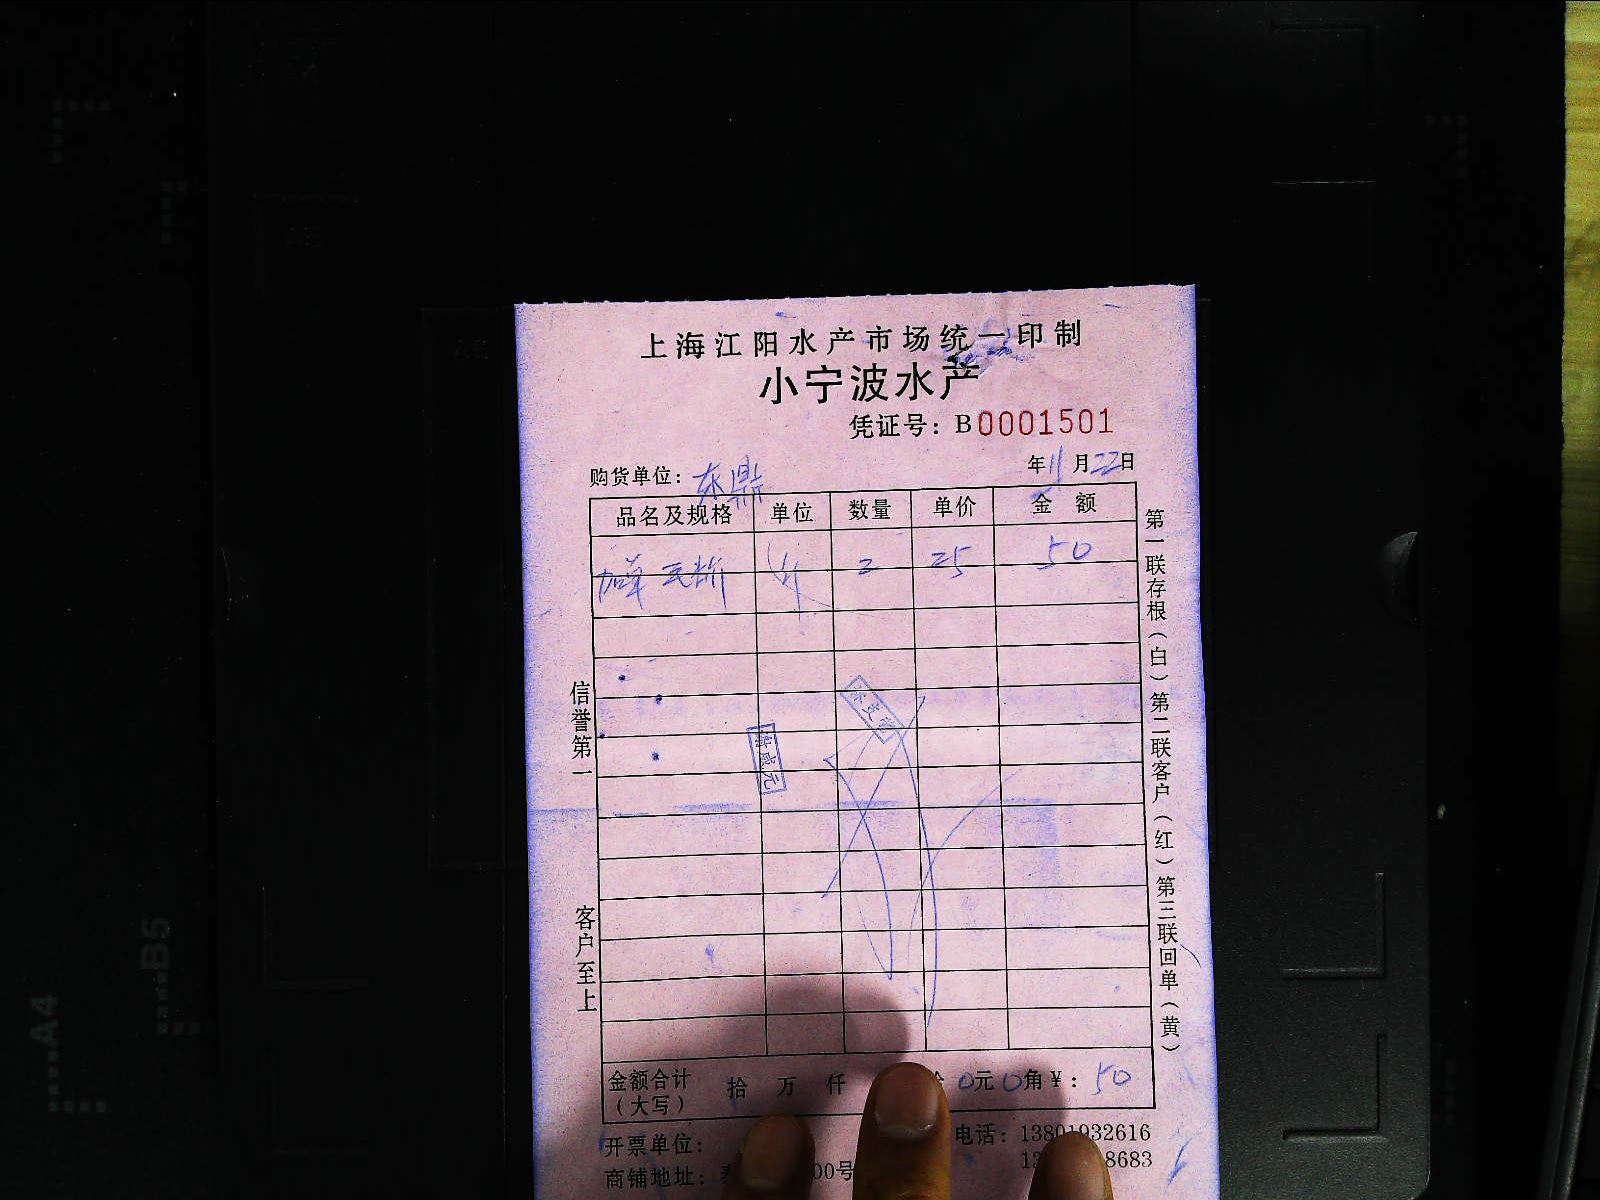 上海江阳水产市场统一印制
小宁波水产
凭证号: B0001501
购货单位: 东鼎
年11月22日
品名及规格 单位 数量 单价 金额
2 25 50
信誉第一
客户至上
第一联存根(白)第二联客户(红)第三联回单(黄)
金额合计 拾 万 仟 0元0角¥: 50
(大写)
开票单位:
电话: 13801932616
8683
商铺地址: 00号
A4
B5
A5